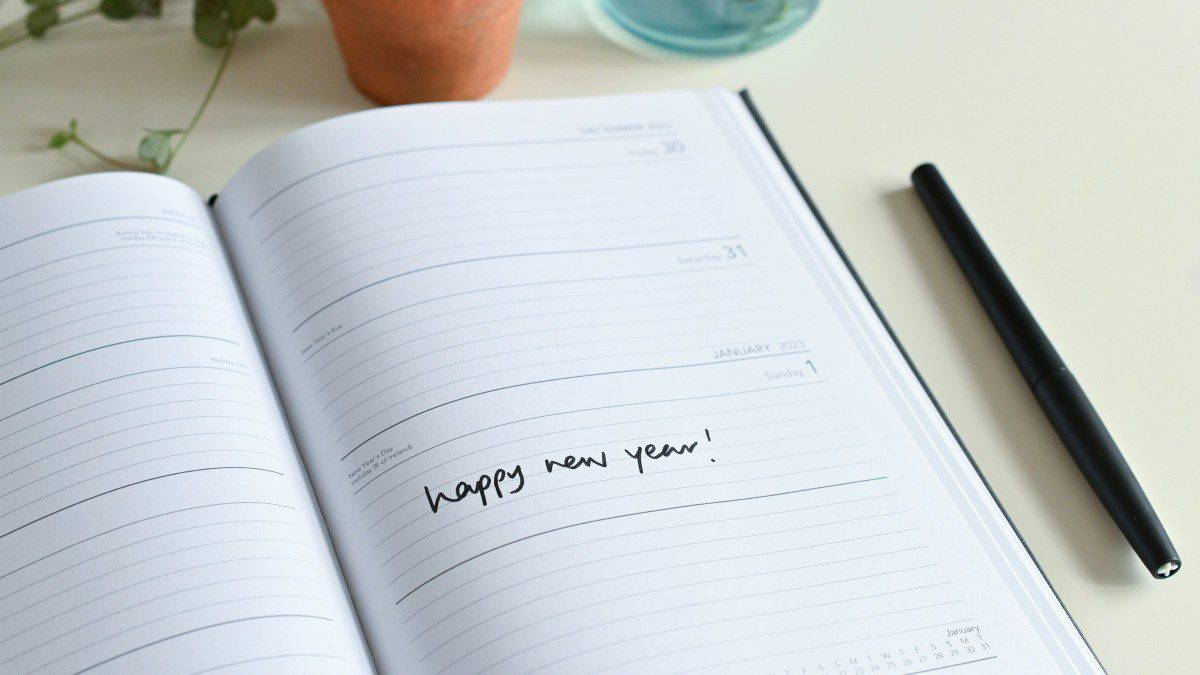 Holiday
DECEMBER
Friday 30
Saturday 31
New Year's Eve
JANUARY 2023
Sunday 1
New Year's Day
Holiday (R of Ireland)
happy new year!
January
F S S M T W T F S S M T
22 23 24 25 26 27 28 29 30 31